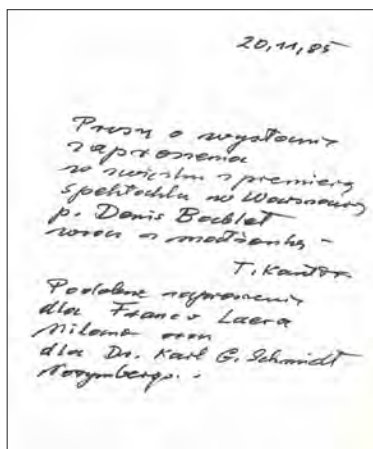 20,11,85
Proszę o wysłanie
zaproszenia
w związku z premierą
spektaklu w Warszawie
p. Denis Bablet
wraz z małżonką –
T. Kantor
Podobne zaproszenia
dla Franco Laera
Milano oraz
dla Dr. Karl G. Schmidt
Norymberga.